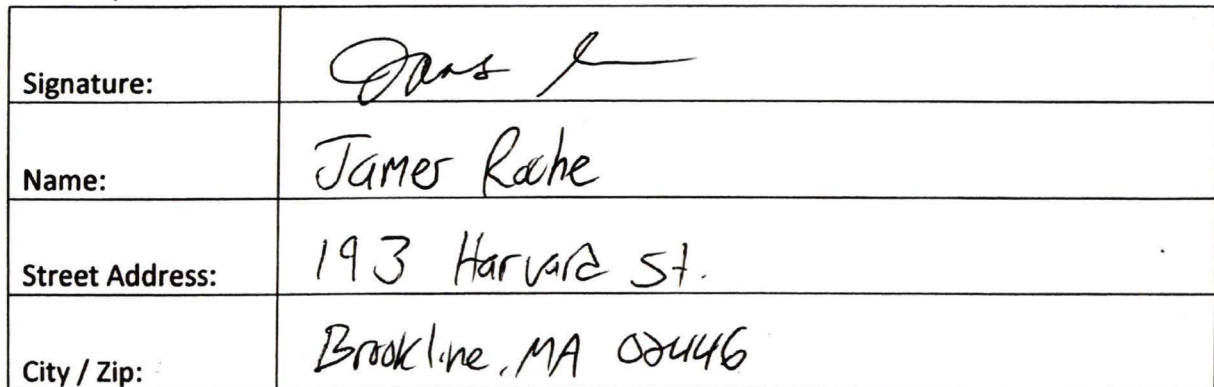 Signature:
Name: James Roche
Street Address: 193 Harvard St.
City / Zip: Brookline, MA 02446